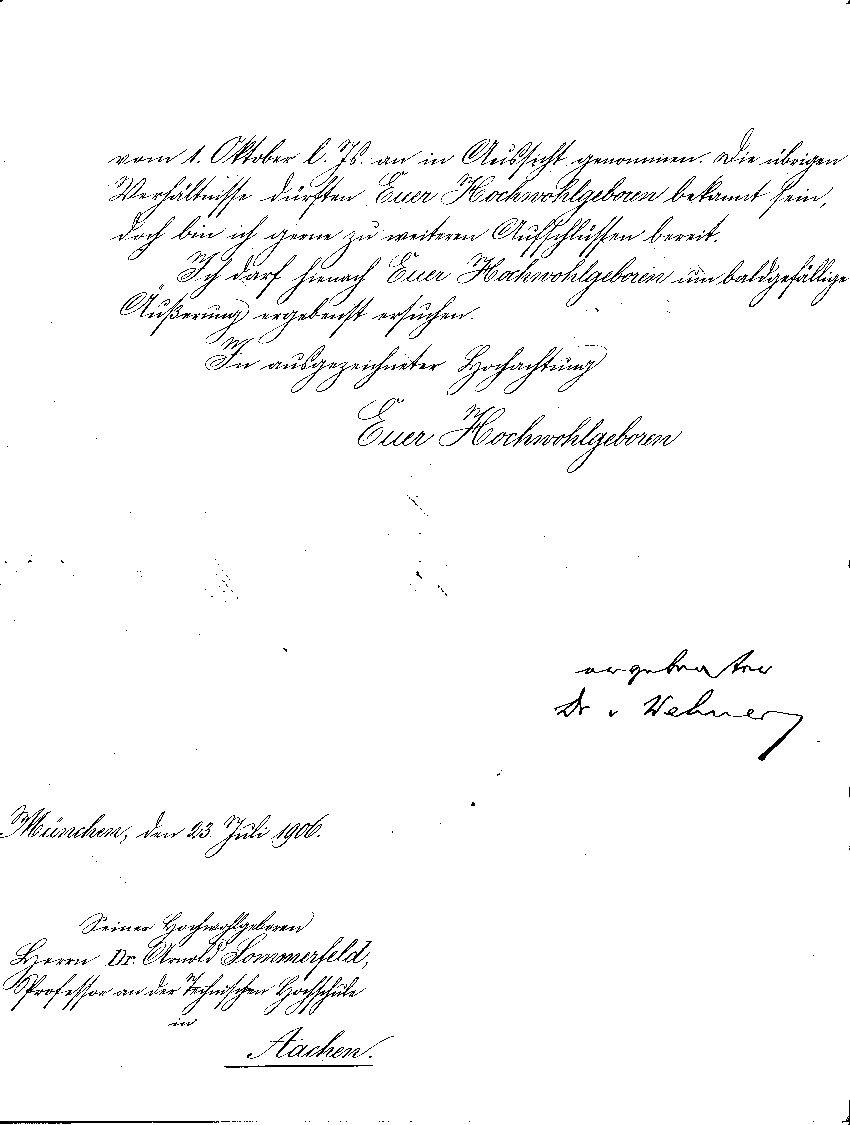 vom 1. Oktober l. Js. an in Aussicht genommen. Die übrigen
Verhältnisse dürften Euer Hochwohlgeboren bekannt sein,
doch bin ich gerne zu weiteren Aufschlüssen bereit.
Ich darf hienach Euer Hochwohlgeboren um baldgefällige
Äußerung ergebenst ersuchen.
In ausgezeichneter Hochachtung
Euer Hochwohlgeboren
ergebenster
Dr. v Wehner
München, den 23. Juli 1906.
Seiner Hochwohlgeboren
Herrn Dr. Arnold Sommerfeld,
Professor an der Technischen Hochschule
in
Aachen.